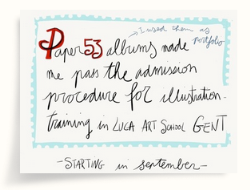 I used them as portfolio
Paper 53 albums made
me pass the admission
procedure for illustration-
training in LUCA ART SCHOOL GENT
- STARTING in september -